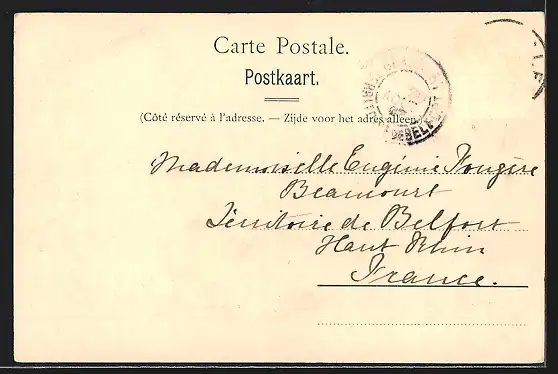 Carte Postale.
Postkaart.
(Côté réservé à l'adresse. — Zijde voor het adres alleen.)
Mademoiselle Eugénie Fougère
Beaucourt
Téritoire de Belfort
Haut Rhin
France.
BELFORT